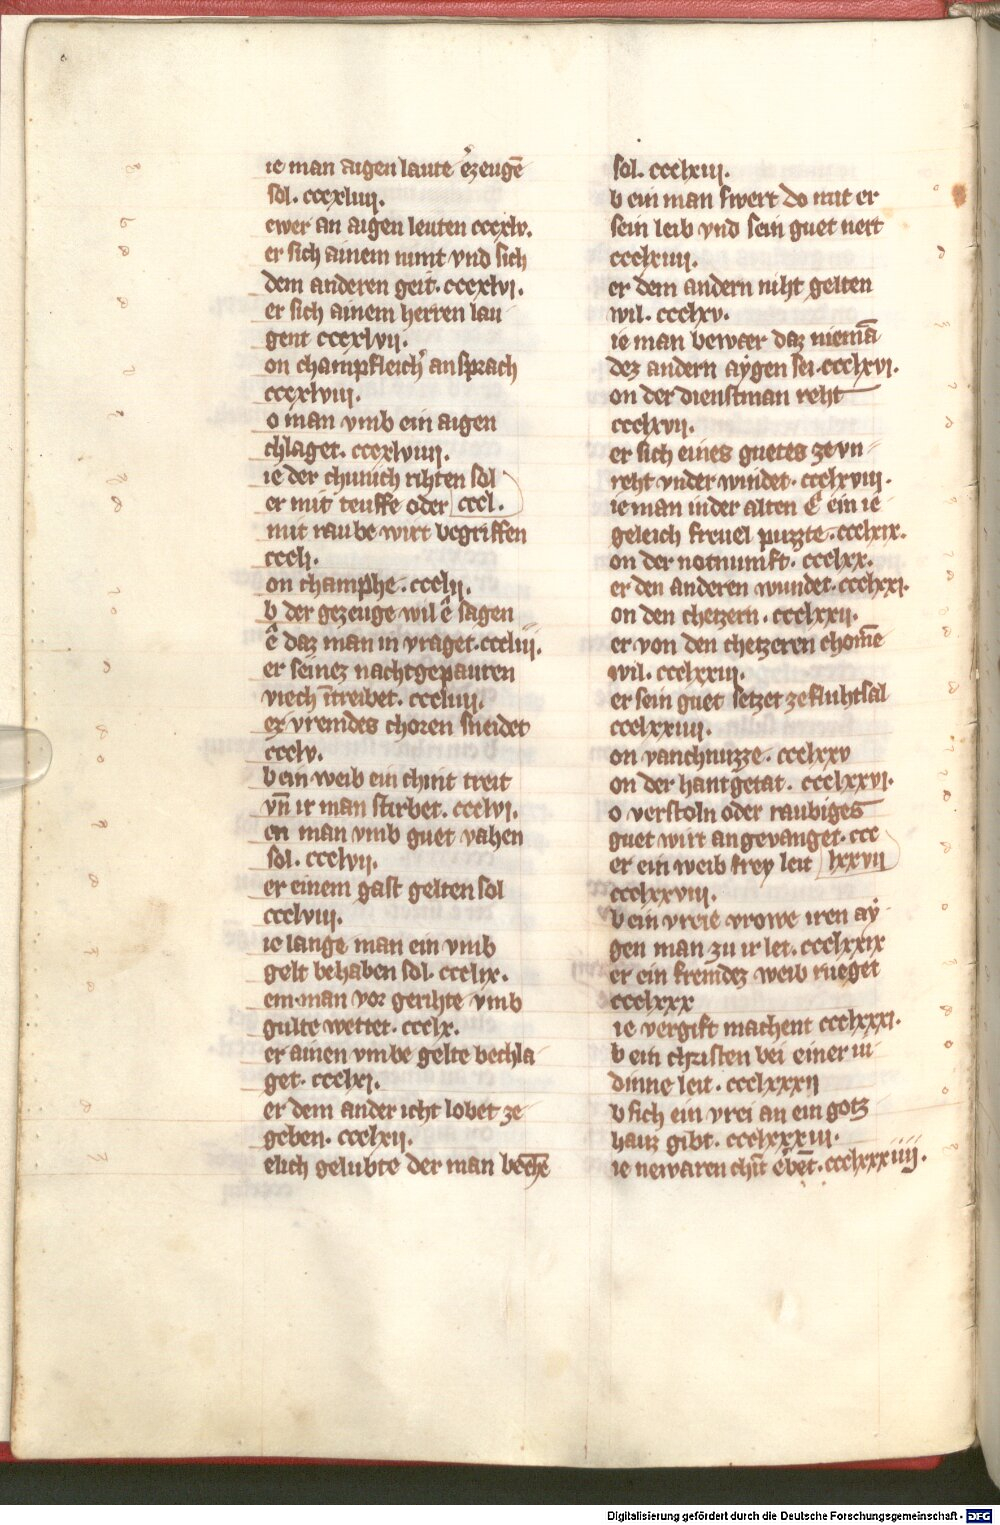 ie man aigen laute erzeugē
sol. cccxliiii.
ewer an aigen leuten cccxlv.
er sich ainem nimt vnd sich
dem anderen geit. cccxlvi.
er sich ainem herren lau
gent cccxlvii.
on champfleich ansprach
cccxlviii.
o man vmb ein aigen
chlaget. cccxlviiii.
ie der chunich rihten sol
er mit teuffe oder cccl.
mit raube wirt begriffen
cccli.
on champhe. ccclii.
b der gezeuge wil ê sagen
ê daz man in vraget. cccliii.
er seinez nachtgepauren
viech īntreibet. cccliiii.
er vremdes choren sneidet
ccclv.
b ein weib ein chint treit
vn̄ ir man stirbet. ccclvi.
en man vmb guet vahen
sol. ccclvii.
er einem gast gelten sol
ccclviii.
ie lange man ein vmb
gelt behaben sol. ccclix.
em man vor gerihte vmb
gulte wettet. ccclx.
er ainen vmbe gelte bechla
get. ccclxi.
er dem ander icht lobet ze
geben. ccclxii.
elich gelubte der man
sol. ccclxiii.
b ein man swert do mit er
sein leib vnd sein guet nert
ccclxiiii.
er dem andern niht gelten
wil. ccclxv.
ie man bewær daz niemā
dez andern aÿgen sei. ccclxvi.
on der dienstman reht
ccclxvii.
er sich eines guetes ze vn
reht vnder windet. ccclxviii.
ie man in der alten ê ein ie
geleich freuel puzzte. ccclxix.
on der notnumft. ccclxx.
er den anderen wundet. ccclxxi.
on den chetzern. ccclxxii.
er von den chetzeren chom̄e
wil. ccclxxiii.
er sein guet setzet ze fluhtsal
ccclxxiiii.
on vanchnuzze. ccclxxv
on der hantgetat. ccclxxvi.
o verstoln oder raubiges
guet wirt angevanget. ccc
er ein weib frey leit lxxvii
ccclxxviii.
b ein vreie vrowe iren aÿ
gen man zu ir let. ccclxxix
er ein fremdez weib rueget
ccclxxx
ie vergift machent ccclxxxi.
b ein christen bei einer iu
dinne leit. ccclxxxii
b sich ein vrei an ein gotz
hauz gibt. ccclxxxiii.
ie newaren ccclxxxiiii.
Digitalisierung gefördert durch die Deutsche Forschungsgemeinschaft - DFG